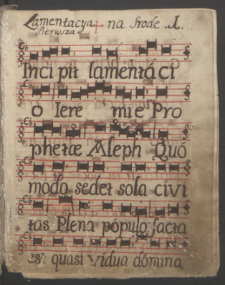 Lamentacya na Srode .1.
Pierwsza
Inci pit lamentá ci
o Iere mie Pro
phetæ Aleph Quó
modo sedet sola civi
tas Plena pópulo facta
est quasi vidua dómina